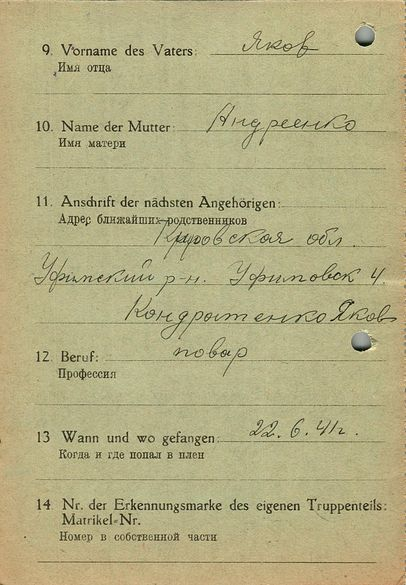 9. Vorname des Vaters: Яков
Имя отца
10. Name der Mutter: Андреенко
Имя матери
11. Anschrift der nächsten Angehörigen:
Адрес ближайших родственников
Кировская обл.
Уфимский р-н. Уфимовск 4.
Кондратенко Яков
12. Beruf: повар
Профессия
13 Wann und wo gefangen: 22.6.41г.
Когда и где попал в плен
14. Nr. der Erkennungsmarke des eigenen Truppenteils:
Matrikel-Nr.
Номер в собственной части